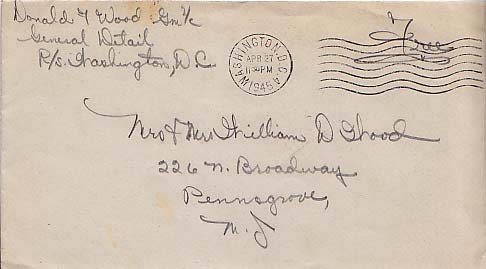 Donald F Wood Gm 3/c
General Detail
R/S. Washington, D.C.
WASHINGTON, D.C.
APR 27
11 30 PM
1945
Free
Mr & Mrs William D Wood
226 N. Broadway
Pennsgrove,
N. J